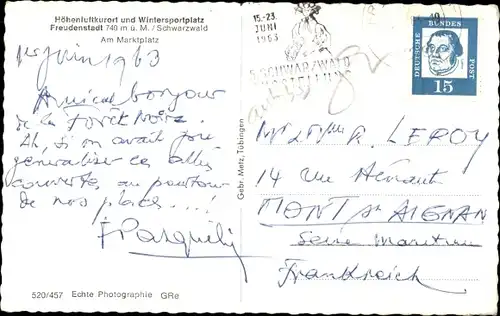 Höhenluftkurort und Wintersportplatz
Freudenstadt 740 m ü. M. / Schwarzwald
Am Marktplatz
Juin 1963
Amical bonjour
de la Forêt Noire.
Ah, si on avait pu
généraliser ces allées
couvertes, au pourtour
de nos places...!
520/457 Echte Photographie GRe
Gebr. Metz, Tübingen
15.-23.
JUNI
1963
SCHWARZWALD
DEUTSCHE BUNDES POST
15
LEROY
14 rue
MONT St AIGNAN
Seine Maritime
Frankreich